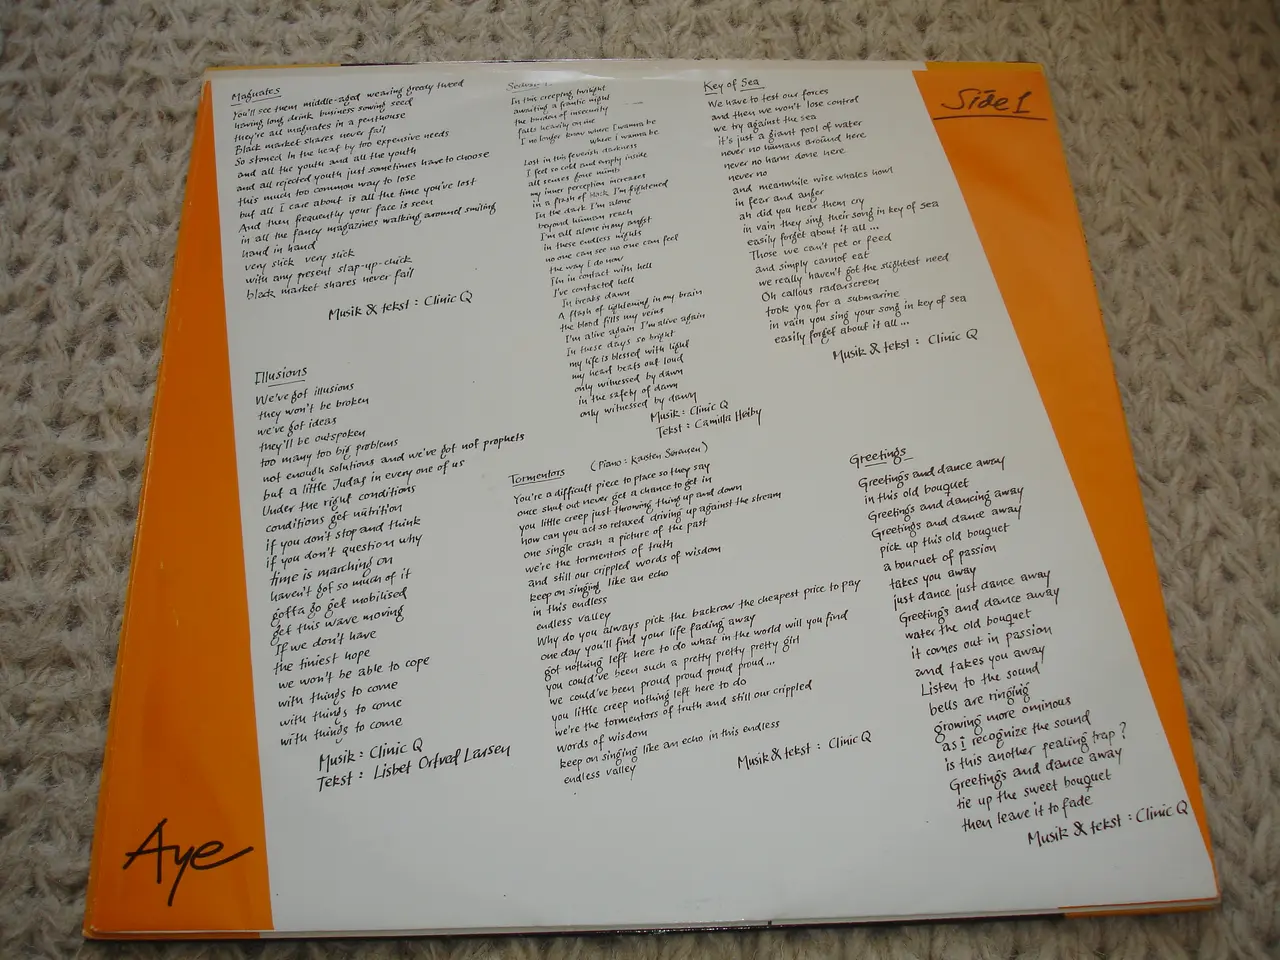 Magnates
You'll see them middle-aged wearing greedy tweed
having long drink business sowing seed
they're all magnates in a penthouse
Black market shares never fail
So stoned in the heaf by too expensive needs
and all the youth and all the youth
and all rejected youth just sometimes have to choose
this much too common way to lose
but all I care about is all the time you've lost
And then frequently your face is seen
in all the fancy magazines walking around smiling
hand in hand
very slick very slick
with any present slap-up-chick
black market shares never fail
Musik & tekst : Clinic Q
Illusions
We've got illusions
they won't be broken
we've got ideas
they'll be outspoken
too many too big problems
not enough solutions and we've got not prophets
but a little Judas in every one of us
Under the right conditions
conditions get nutrition
if you don't stop and think
if you don't question why
time is marching on
haven't got so much of it
gotta go get mobilised
get this wave moving
If we don't have
the tiniest hope
we won't be able to cope
with things to come
with things to come
with things to come
Musik : Clinic Q
Tekst : Lisbet Ortved Larsen
In this creeping twilight
awaiting a frantic night
the burden of insecurity
falls heavily on me
I no longer know where I wanna be
where I wanna be
Lost in this feverish darkness
I feel so cold and empty inside
all senses gone numb
my inner perception increases
in a flash of black I'm frightened
In the dark I'm alone
beyond human reach
I'm all alone in my angst
in these endless nights
no one can see no one can feel
the way I do now
I'm in contact with hell
I've contacted hell
In breaks dawn
A flash of lightening in my brain
the blood fills my veins
I'm alive again I'm alive again
In these days so bright
my life is blessed with light
my heart beats out loud
only witnessed by dawn
in the safety of dawn
only witnessed by dawn
Musik : Clinic Q
Tekst : Camilla Høiby
Tormentors (Piano : Karsten Sørensen)
You're a difficult piece to place so they say
once shut out never get a chance to get in
you little creep just throwing thing up and down
how can you act so relaxed driving up against the stream
one single crash a picture of the past
we're the tormentors of truth
and still our crippled words of wisdom
keep on singing like an echo
in this endless
endless valley
Why do you always pick the backrow the cheapest price to pay
one day you'll find your life fading away
got nothing left here to do what in the world will you find
you could've been such a pretty pretty pretty girl
we could've been proud proud proud proud...
you little creep nothing left here to do
we're the tormentors of truth and still our crippled
words of wisdom
keep on singing like an echo in this endless
endless valley
Musik & tekst : Clinic Q
Key of Sea
We have to test our forces
and then we won't lose control
we try against the sea
it's just a giant pool of water
never no humans around here
never no harm done here
never no
and meanwhile wise whales howl
in fear and anger
ah did you hear them cry
in vain they sing their song in key of sea
easily forget about it all ...
Those we can't pet or feed
and simply cannot eat
we really haven't got the slightest need
Oh callous radarscreen
took you for a submarine
in vain you sing your song in key of sea
easily forget about it all ...
Musik & tekst : Clinic Q
Greetings
Greetings and dance away
in this old bouquet
Greetings and dancing away
Greetings and dance away
pick up this old bouquet
a bouquet of passion
takes you away
just dance just dance away
Greetings and dance away
water the old bouquet
it comes out in passion
and takes you away
Listen to the sound
bells are ringing
growing more ominous
as i recognize the sound
is this another pealing trap?
Greetings and dance away
tie up the sweet bouquet
then leave it to fade
Musik & tekst : Clinic Q
Side 1
Aye